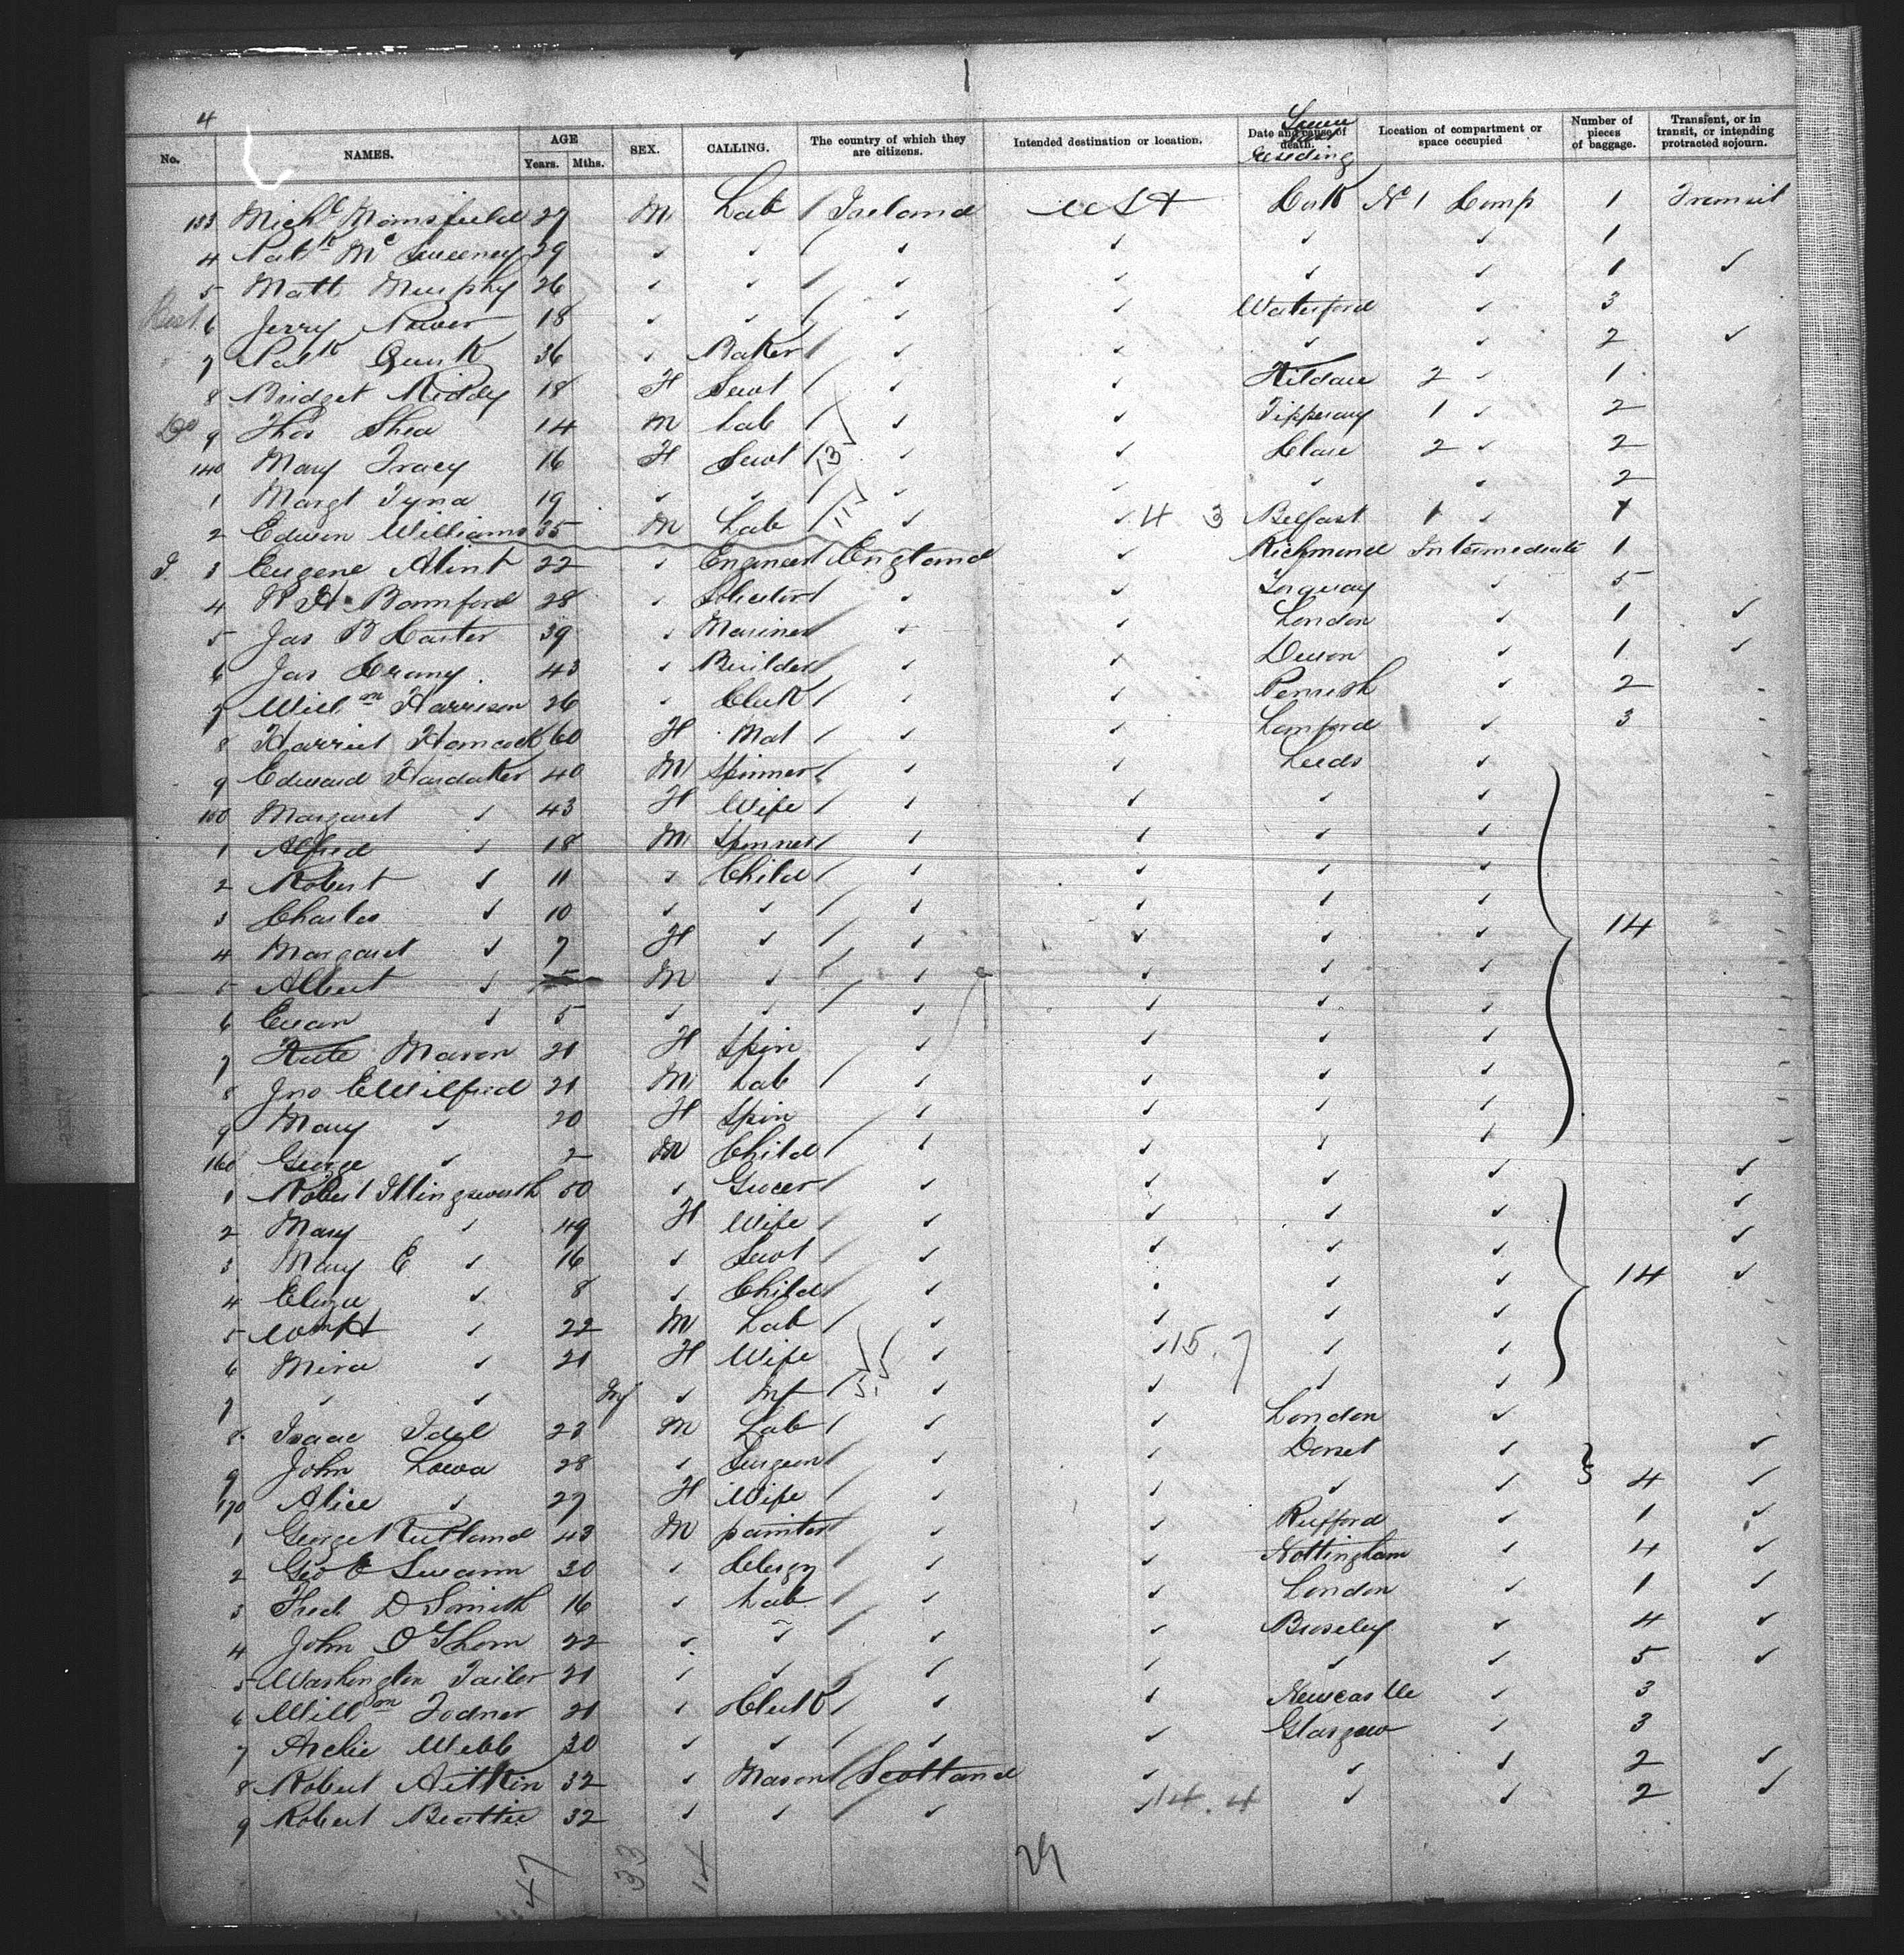 4
No. NAMES. AGE Years. Mths. SEX. CALLING. The country of which they are citizens. Intended destination or location. Date and cause of death. Location of compartment or space occupied Number of pieces of baggage. Transient, or in transit, or intending protracted sojourn.
Residing
133 Michl Mansfield 27 M Lab / Ireland USA Cork No 1 Comp 1 Transit
4 Patk Mc Sweeney 29 ✓ ✓ / ✓ ✓ ✓ ✓ 1
5 Matt Murphy 26 ✓ ✓ / ✓ ✓ ✓ ✓ 1 ✓
6 Jerry Power 18 ✓ ✓ / ✓ ✓ Waterford ✓ 3
7 Patk Quirk 36 ✓ Baker / ✓ ✓ ✓ ✓ 2 ✓
8 Bridget Kiddy 18 F Servt / ✓ ✓ Kildare 2 ✓ 1
Do 9 Thos Shea 14 M Lab / ✓ ✓ Tipperary 1 ✓ 2
140 Mary Tracy 16 F Servt / 13 ✓ ✓ Clare 2 ✓ 2
1 Margt Tyna 19 ✓ ✓ / ✓ ✓ ✓ ✓ 2
2 Edwin Williams 35 M Lab / 11 ✓ ✓ 4 3 Belfast 1 ✓ 1
3 Eugene Alint 22 ✓ Engineer / England ✓ Richmond Intermediate 1
4 W H Bamford 28 ✓ / ✓ ✓ Torquay ✓ 5
5 Jas B Carter 39 ✓ Mariner / ✓ ✓ London ✓ 1 ✓
6 Jas Crany 43 ✓ Builder / ✓ ✓ Devon ✓ 1 ✓
7 Willm Harrison 26 ✓ Clerk / ✓ ✓ ✓ 2
8 Harriet Hancock 60 F Mat / ✓ ✓ Lamford ✓ 3
9 Edward Hardaker 40 M Spinner / ✓ ✓ Leeds ✓
150 Margaret ✓ 43 F Wife / ✓ ✓ ✓ ✓
1 Alfred ✓ 18 M Spinner / ✓ ✓ ✓ ✓
2 Robert ✓ 11 ✓ Child / ✓ ✓ ✓ ✓
3 Charles ✓ 10 ✓ ✓ / ✓ ✓ ✓ ✓ 14
4 Margaret ✓ 7 F ✓ / ✓ ✓ ✓ ✓
5 Albert ✓ M ✓ / ✓ ✓ ✓ ✓
6 Evan ✓ 5 ✓ ✓ / ✓ ✓ ✓ ✓
7 Kate Mason 21 F Spin ✓ ✓ ✓ ✓
8 Jno E Wilfred 21 M Lab / ✓ ✓ ✓ ✓
9 Mary ✓ 20 F Spin ✓ ✓ ✓ ✓
160 George ✓ 2 M Child / ✓ ✓ ✓ ✓
1 Robert Illingworth 50 ✓ Grocer / ✓ ✓ ✓ ✓ ✓
2 Mary ✓ 49 F Wife / ✓ ✓ ✓ ✓ ✓
3 Mary E ✓ 16 ✓ Servt / ✓ ✓ ✓ ✓ ✓
4 Eliza ✓ 8 ✓ Child / ✓ ✓ ✓ ✓ 14 ✓
5 Wm H ✓ 22 M Lab / ✓ ✓ ✓ ✓
6 Mira ✓ 21 F Wife / ✓ ✓ 15. 7 ✓ ✓
7 ✓ ✓ Inf ✓ Inf / 5. ✓ ✓ ✓ ✓
8 Isaac Idel 23 M Lab / ✓ ✓ London ✓
9 John Lowa 28 ✓ Surgeon / ✓ ✓ Dorset ✓ ✓
170 Alice ✓ 27 F Wife / ✓ ✓ ✓ ✓ 4 ✓
1 George Rutland 43 M painter / ✓ ✓ Rufford ✓ 1 ✓
2 Geo E Swann 30 ✓ Clergy / ✓ ✓ Nottingham ✓ 4 ✓
3 Fred D Smith 16 ✓ Lab / ✓ ✓ London ✓ 1 ✓
4 John O Thorn 22 ✓ ✓ / ✓ ✓ Broseley ✓ 4 ✓
5 Washington Tailor 21 ✓ ✓ / ✓ ✓ ✓ ✓ 5 ✓
6 Willm Todner 21 ✓ Clerk / ✓ ✓ Newcastle ✓ 3
7 Archie Webb 30 ✓ ✓ / ✓ ✓ Glasgow ✓ 3
8 Robert Aitkin 32 ✓ Mason / Scotland ✓ ✓ ✓ 2 ✓
9 Robert Beattie 32 ✓ ✓ / ✓ ✓ 14. 4 ✓ ✓ 2 ✓
47 33 14 29